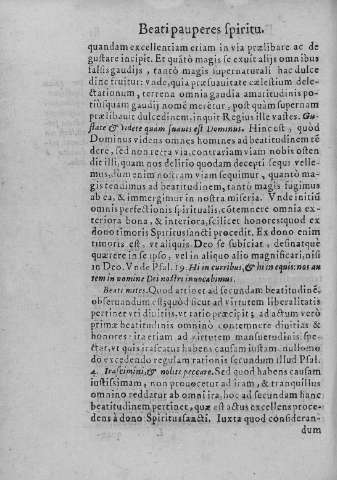 Beati pauperes spiritu.
quandam excellentiam etiam in via prælibare ac de
gustare incipit. Et quãtò magis se exuit alijs omnibus
falsis gaudijs, tantò magis supernaturali hac dulce
dine fruitur: vnde, quia præ suauitate cælestium dele
ctationum, terrena omnia gaudia amaritudinis po
tiùs quam gaudij nomẽ merẽtur, post quàm supernam
prælibauit dulcedinem, inquit Regius ille vastes. Gu-
state & videte quam suauis est Dominus. Hinc est, quòd
Dominus videns omnes homines ad beatitudinem tẽ
dere, sed non recta via, contrariam viam nobis osten
die illi, quam nos delirio quodam decepti sequi velle-
mus, dum enim nostram viam sequimur, quantò ma-
gis tendimus ad beatitudinem, tantò magis fugimus
ab ea, & immergimur in nostra miseria. Vnde initiũ
omnis perfectionis spiritualis, cõtemnere omnia ex-
teriora bona, & interiora, scilicet honores: quod ex
dono timoris Spiritussancti procedit. Ex dono enim
timoris est, vt aliquis Deo se subiciat, desinatquè
quærere in se ipso, vel in aliquo alio magnificari, nisi
in Deo. Vnde Psal. 19. Hi in curribus, & hi in equis: nos au
tem in nomine Dei nostri inuocabimus.
Beati mites. Quod attinet ad secundam beatitudinẽ,
obseruandum est; quòd sicut ad virtutem liberalitatis
pertinet vti diuitijs, vt ratio præcipit; ad actum verò
primæ beatitudinis omninò contemnere diuitias &
honores: ita etiam ad virtutem mansuetudinis spe-
ctat, vt quis irascatur habens causam iustam, nullo mo
dò excedendo regulam rationis secundum illud Psal.
4. Irascimini, & nolite peccare. Sed quod habens causam
iustissimam, non prouocetur ad iram, & tranquillus
omnino reddatur ab omni ira, hoc ad secundam hanc
beatitudinem pertinet, quæ est actus excellens proce-
dens à dono Spiritussancti. Iuxta quod consideran-
dum